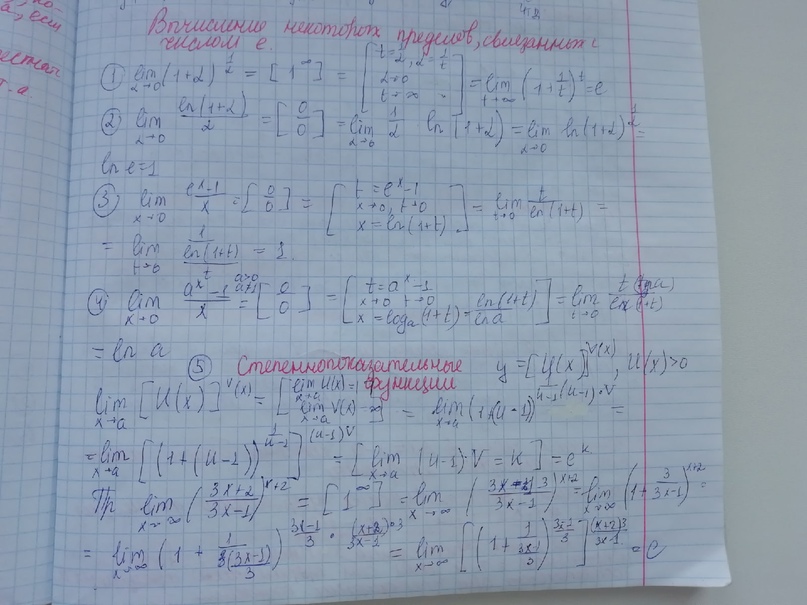 Вычисление некоторых пределов, связанных с
числом e.
① lim_{α→0} (1+α)^{1/α} = [1^∞] = [t=1/α, α=1/t; α→0; t→∞] = lim_{t→∞} (1+1/t)^t = e
② lim_{α→0} ln(1+α)/α = [0/0] = lim_{α→0} 1/α ln(1+α) = lim_{α→0} ln(1+α)^{1/α} =
ln e=1
③ lim_{x→0} (e^x-1)/x = [0/0] = [t=e^x-1; x→0, t→0; x=ln(1+t)] = lim_{t→0} t/ln(1+t) =
= lim_{t→0} 1/(ln(1+t)/t) = 1.
④ lim_{x→0} (a^x-1)/x = [0/0] = [t=a^x-1; x→0 t→0; x=log_a(1+t)=ln(1+t)/ln a] = lim_{t→0} t ln a/ln(1+t)
= ln a
⑤ Степеннопоказательные функции y=[U(x)]^{V(x)}, U(x)>0
lim_{x→a} [U(x)]^{V(x)} = [lim_{x→a} U(x)=1; lim_{x→a} V(x)=∞] = lim_{x→a} (1+(U-1))^{1/(U-1) (U-1)·V} =
= lim_{x→a} [(1+(U-1))^{1/(U-1)}]^{(U-1)V} = [lim_{x→a} (U-1)·V=K] = e^K
Пр lim_{x→∞} ((3x+2)/(3x-1))^{x+2} = [1^∞] = lim_{x→∞} ((3x-1+3)/(3x-1))^{x+2} = lim_{x→∞} (1+3/(3x-1))^{x+2} =
= lim_{x→∞} (1+1/((3x-1)/3))^{(3x-1)/3 · (x+2)·3/(3x-1)} = lim_{x→∞} [(1+1/((3x-1)/3))^{(3x-1)/3}]^{(x+2)3/(3x-1)} = e